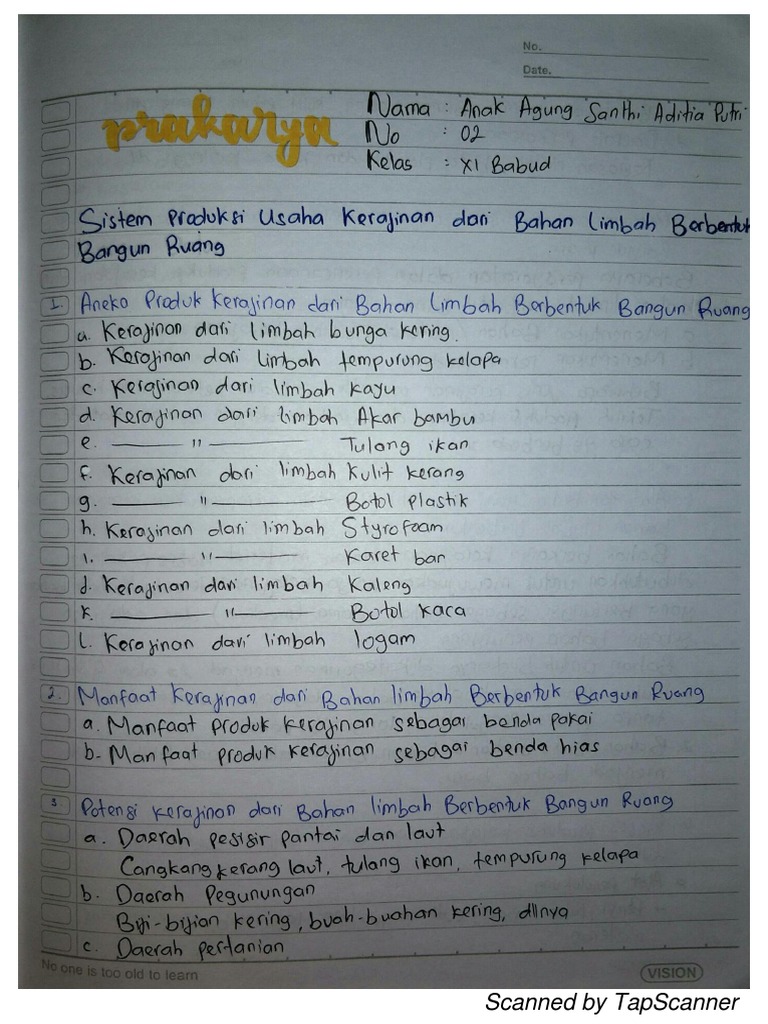 No.
Date.
prakarya
Nama : Anak Agung Santhi Aditia Putri
No : 02
Kelas : XI Babud
Sistem Produksi Usaha Kerajinan dari Bahan Limbah Berbentuk
Bangun Ruang
1. Aneka Produk Kerajinan dari Bahan Limbah Berbentuk Bangun Ruang
a. Kerajinan dari limbah bunga kering.
b. Kerajinan dari limbah tempurung kelapa
c. Kerajinan dari limbah kayu
d. Kerajinan dari limbah Akar bambu
e. ——— " ——— Tulang ikan
f. Kerajinan dari limbah kulit kerang
g. ——— " ——— Botol plastik
h. Kerajinan dari limbah Styrofoam
i. ——— " ——— Karet ban
j. Kerajinan dari limbah Kaleng
k. ——— " ——— Botol kaca
l. Kerajinan dari limbah logam
2. Manfaat Kerajinan dari Bahan limbah Berbentuk Bangun Ruang
a. Manfaat produk kerajinan sebagai benda pakai
b. Manfaat produk kerajinan sebagai benda hias
3. Potensi kerajinan dari Bahan limbah Berbentuk Bangun Ruang
a. Daerah pesisir pantai dan laut
Cangkang kerang laut, tulang ikan, tempurung kelapa
b. Daerah Pegunungan
Biji-bijian kering, buah-buahan kering, dllnya
c. Daerah pertanian
No one is too old to learn
VISION
Scanned by TapScanner